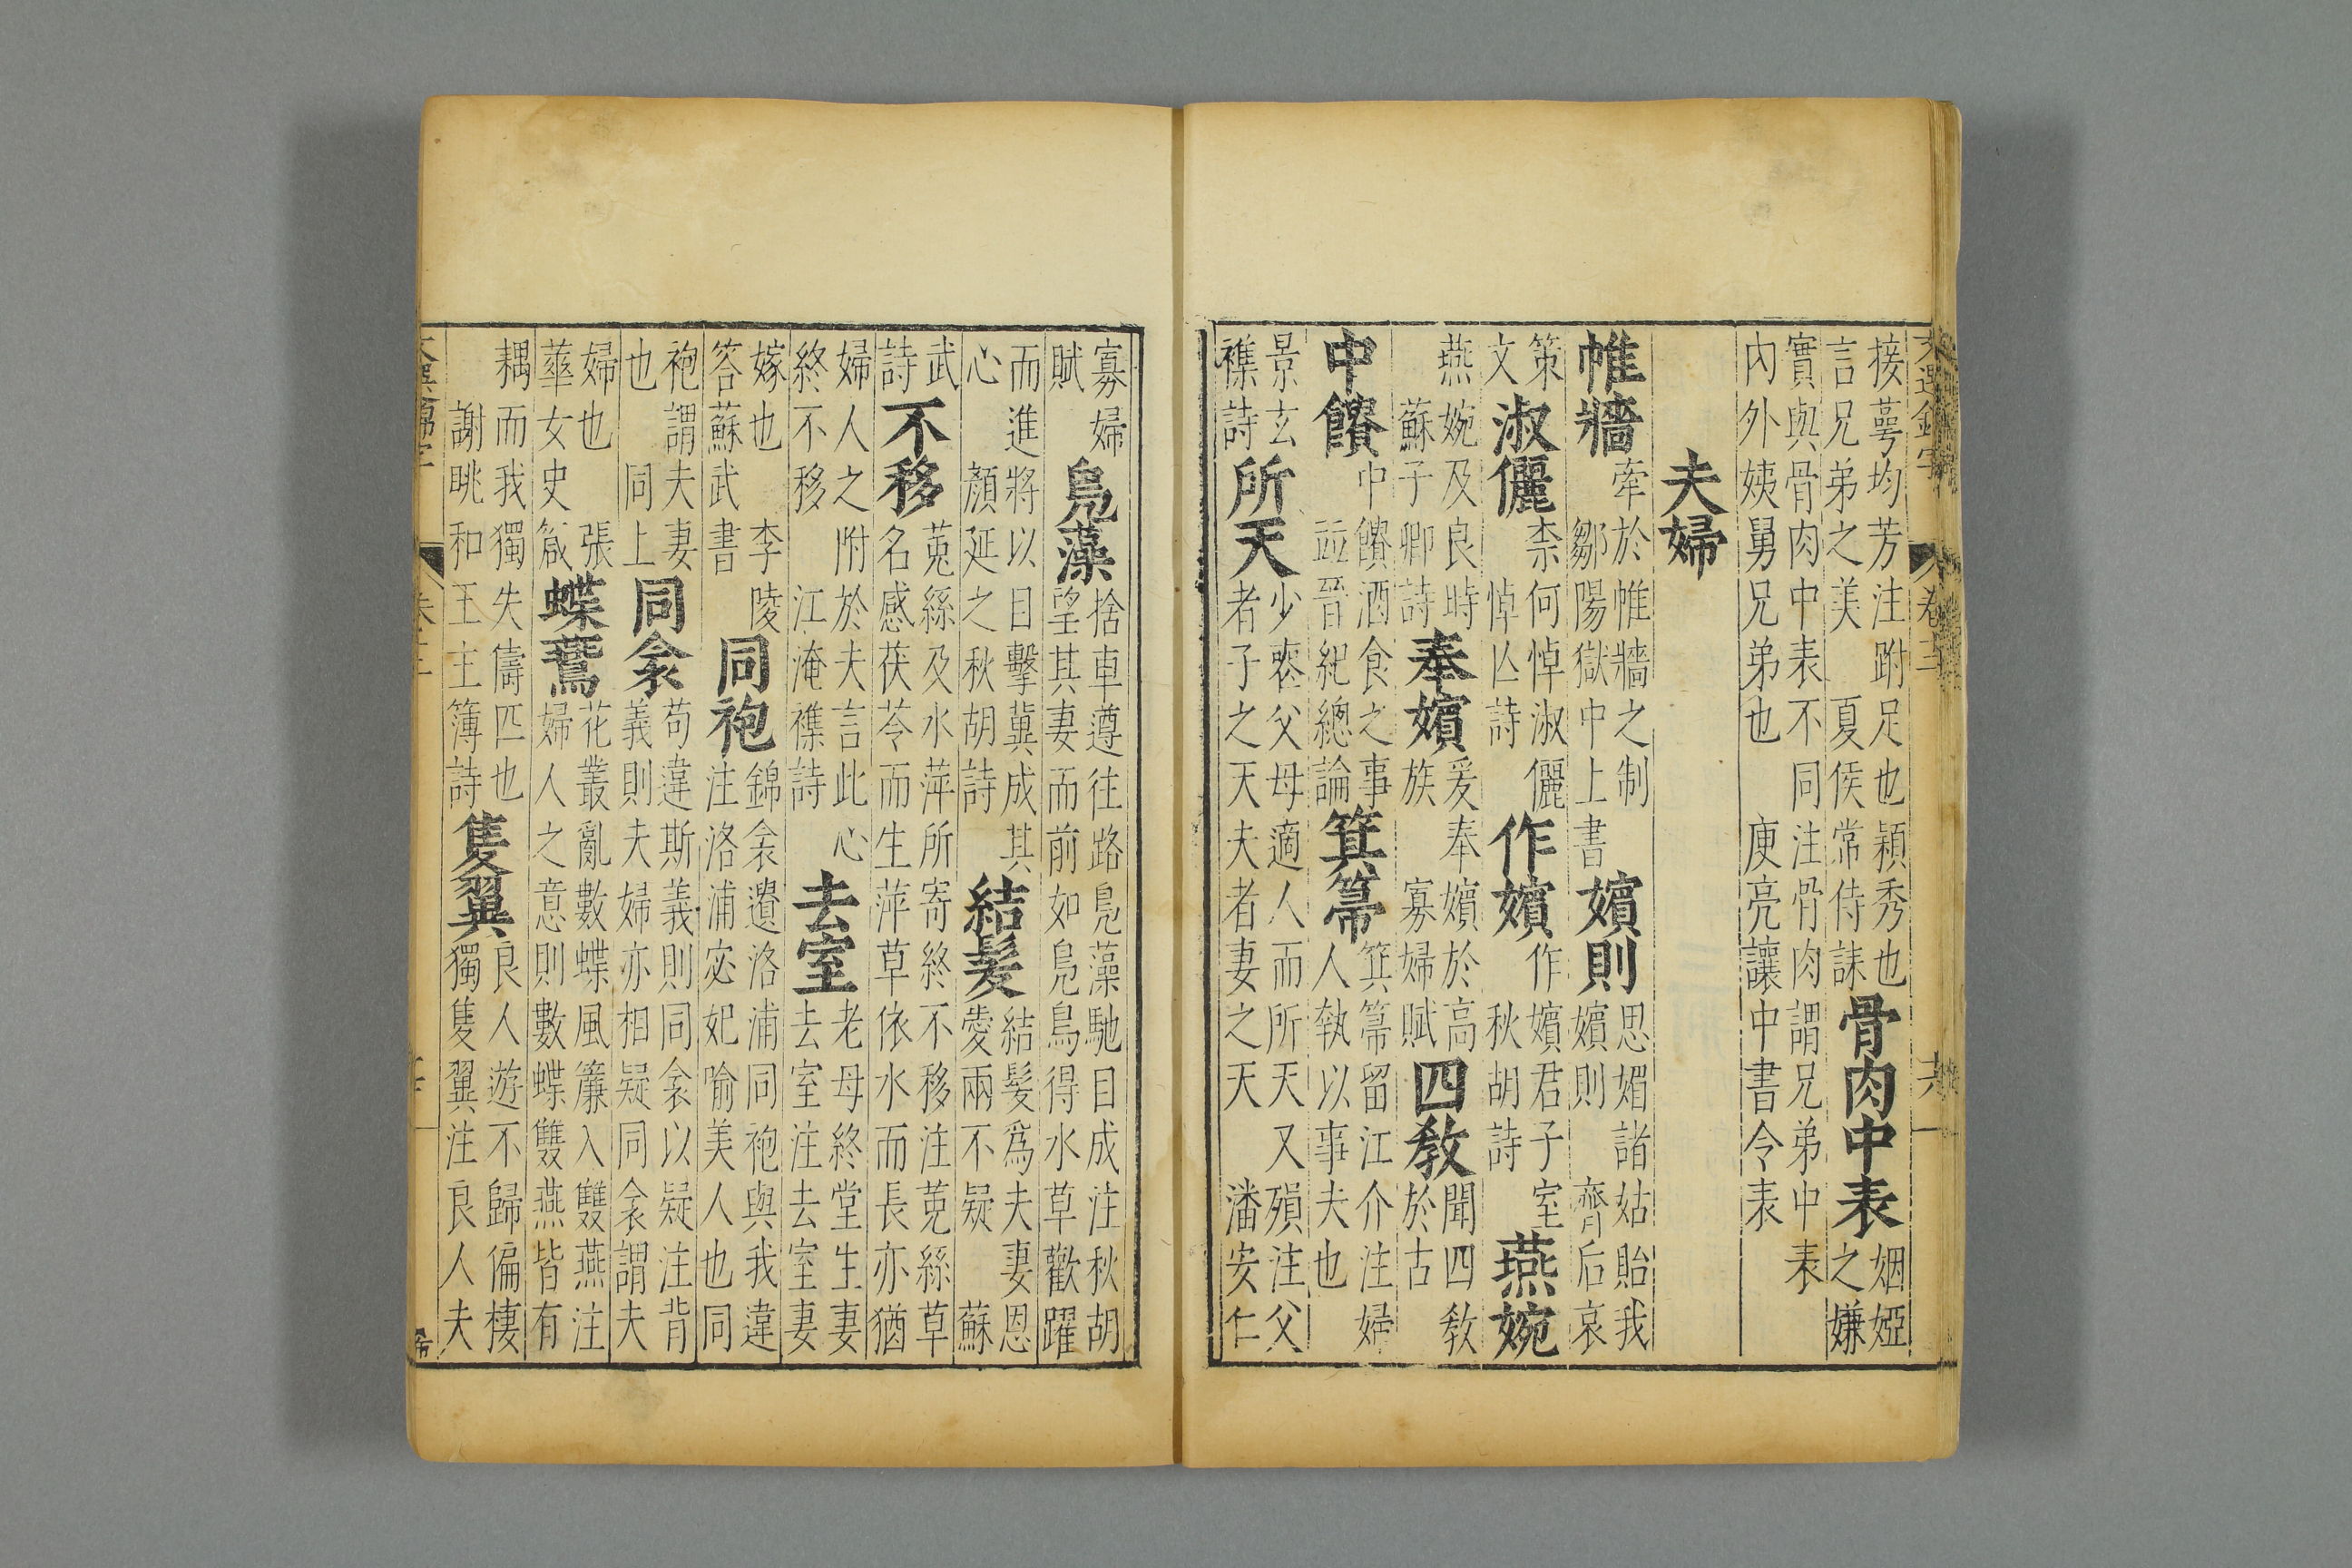 接萼均芳注跗足也穎秀也
言兄弟之美　夏侯常侍誄
骨肉中表
姻婭
之嫌
實與骨肉中表不同注骨肉謂兄弟中表
內外姨舅兄弟也　庾亮讓中書令表
夫婦
帷牆
牽於帷牆之制
鄒陽獄中上書
嬪則
思媚諸姑貽我
嬪則　齊后哀
策
文
淑儷
柰何悼淑儷
悼亾詩
作嬪
作嬪君子室
秋胡詩
燕婉
燕婉及良時
蘇子卿詩
奉嬪
爰奉嬪於高
族　寡婦賦
四敎
聞四敎
於古
中饋
中饋酒食之事
晉紀總論
箕箒
箕箒留江介注婦
人執以事夫也
景玄
襍詩
所天
少喪父母適人而所天又殞注父
者子之天夫者妻之天　潘安仁
寡婦
賦
鳧藻
捨車遵往路鳧藻馳目成注秋胡
望其妻而前如鳧鳥得水草歡躍
而進將以目擊冀成其
心　顏延之秋胡詩
結髮
結髮爲夫妻恩
愛兩不疑　蘇
武
詩
不移
菟絲及水萍所寄終不移注菟絲草
名感茯苓而生萍草依水而長亦猶
婦人之附於夫言此心
終不移　江淹襍詩
去室
老母終堂生妻
去室注去室妻
嫁也　李陵
答蘇武書
同袍
錦衾遺洛浦同袍與我違
注洛浦宓妃喻美人也同
袍謂夫妻
也　同上
同衾
苟違斯義則同衾以疑注背
義則夫婦亦相疑同衾謂夫
婦也　張
華女史箴
蝶鷰
花叢亂數蝶風簾入雙燕注
婦人之意則數蝶雙燕皆有
耦而我獨失儔匹也
謝眺和王主簿詩
隻翼
良人遊不歸偏棲
獨隻翼注良人夫